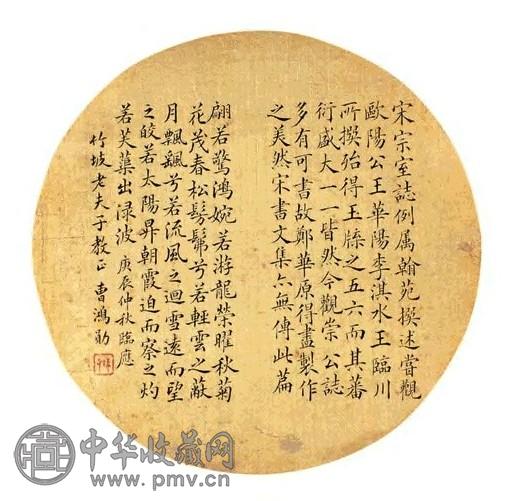 宋宗室誌例属翰苑撰述嘗觀
歐陽公王華陽李淇水王臨川
所撰殆得玉牒之五六而其蕃
衍盛大一一皆然今觀崇公誌
多有可書故鄭華原得盡製作
之美然宋書文集亦無傳此篇
翩若驚鴻婉若游龍榮曜秋菊
花茂春松髣髴兮若輕雲之蔽
月飄颻兮若流風之迴雪遠而望
之皎若太陽昇朝霞迫而察之灼
若芙蕖出淥波 庚辰仲秋臨應
竹坡老夫子教正 曹鴻勛
中华收藏网
www.pmv.cn